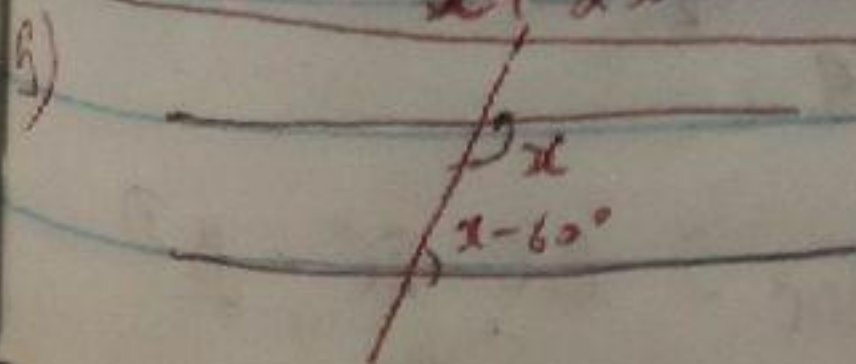 5)
x
x-60°